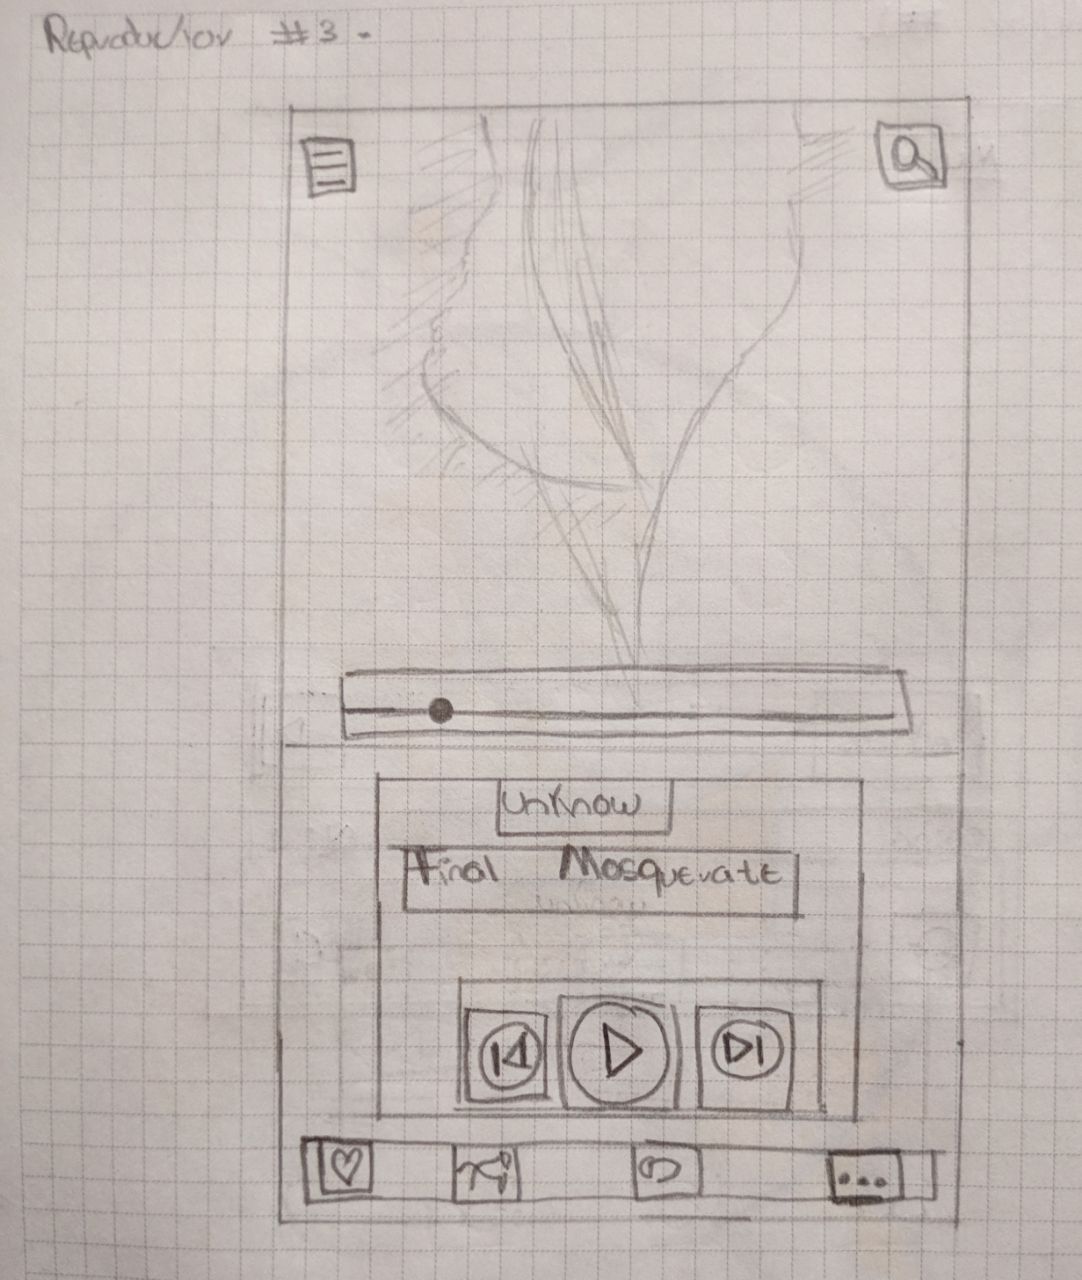 Reproduction #3 -
unknow
Final Mosquerate